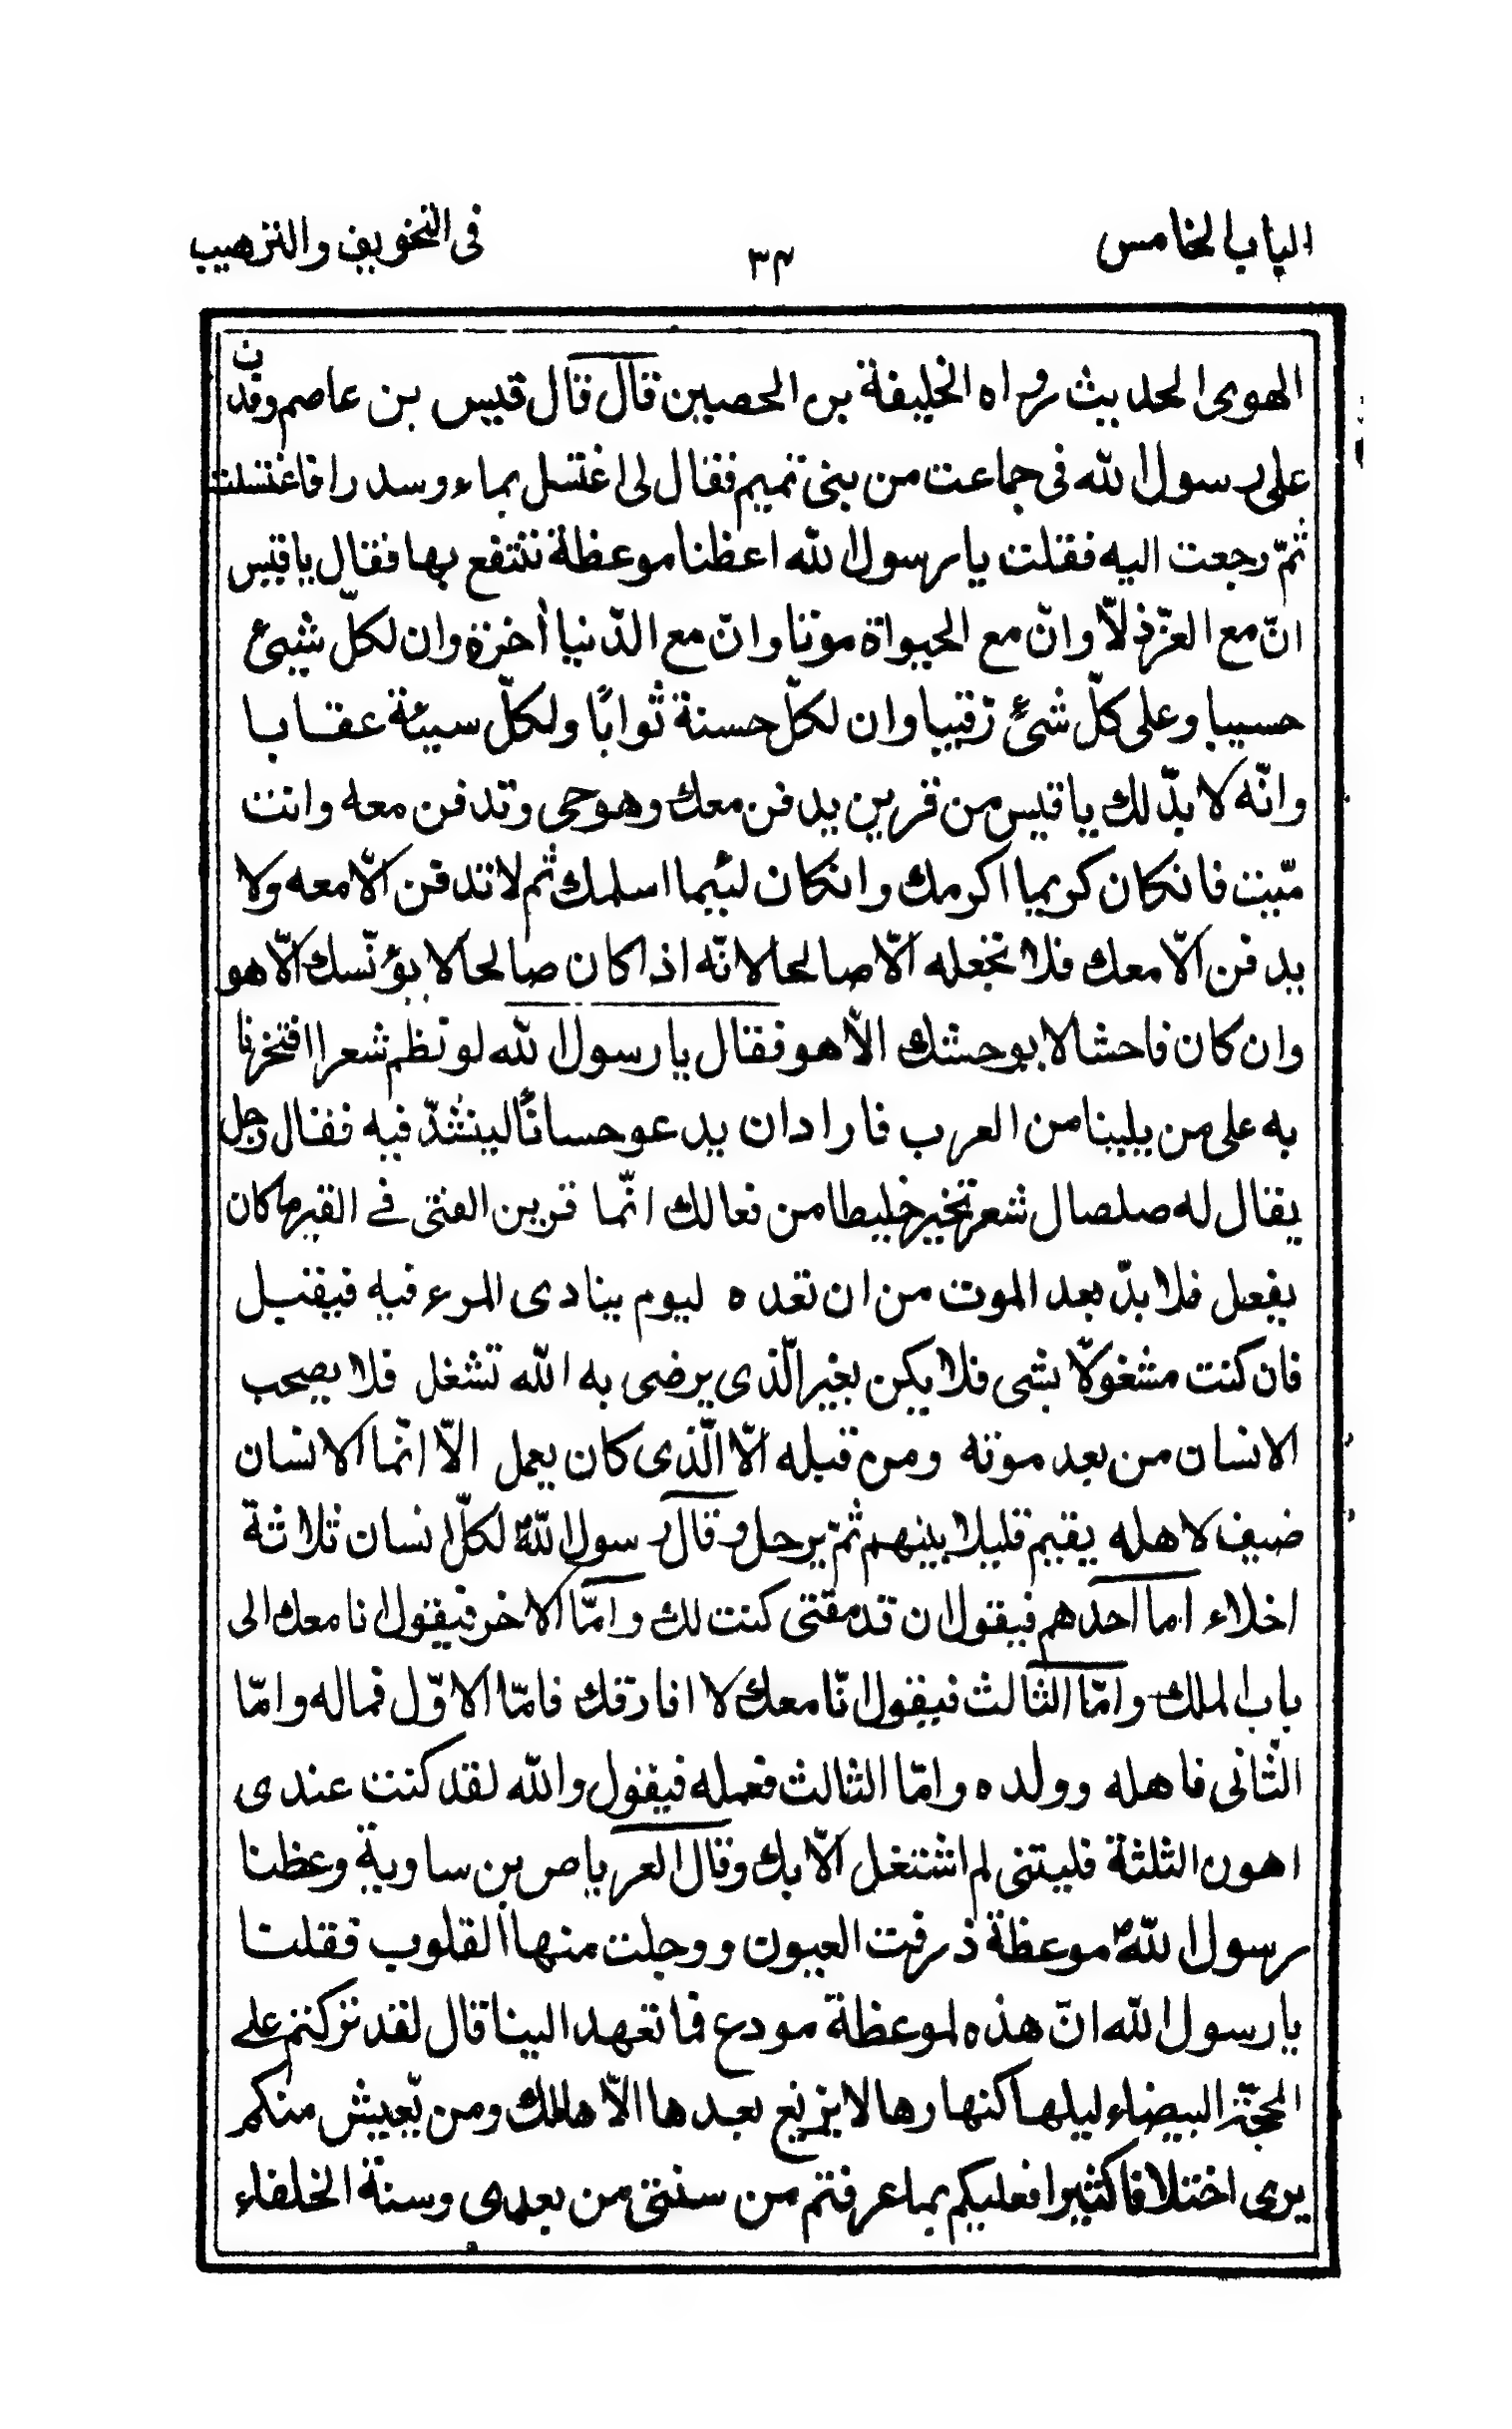 الباب الخامس
٣٤
فى التخويف والترهيب
الهوى الحديث رواه الخليفة بن الحصين قال قال قيس بن عاصم وفدن
على رسول الله فى جماعت من بنى تميم فقال لى اغتسل بماء وسدر افاغتسلت
ثمّ رجعت اليه فقلت يا رسول الله اعظنا موعظة ننتفع بها فقال يا قيس
انّ مع العزّ ذلّا وانّ مع الحيواة موتنا وانّ مع الدّنيا أخرة وان لكلّ شيئ
حسيبا وعلى كلّ شئ رقيبا وان لكلّ حسنة ثوابًا ولكلّ سيئة عقابا
وانّه لا بدّ لك يا قيس من قرين يدفن معك وهو حى وتدفن معه وانت
ميّت فانكان كريما اكرمك وانكان لئيما اسلمك ثم لا تدفن الّا معه ولا
يدفن الّا معك فلا تجعله الّا صالحا لانّه اذا كان صالحا لا يؤنّسك الّا هو
وان كان فاحشا لا يوحشك الّا هو فقال يا رسول الله لو نظم شعرا افتخرنا
به على من يلينا من العرب فاراد ان يدعو حسانًا لينشدّ فيه فقال رجل
يقال له صلصال شعر تخير خليطا من فعالك انّما قرين الفتى فے القبر ما كان
يفعل فلا بدّ بعد الموت من ان تعده ليوم ينادى المرء فيه فيقبل
فان كنت مشغولّا بشى فلا يكن بغير الّذى يرضى به الله تشغل فلا يصحب
الانسان من بعد موته ومن قبله الّا الّذى كان يعمل الّا انّما الانسان
ضيف لاهله يقيم قليلا بينهم ثمّ يرحل وقال رسول اللهؐ لكلّ انسان ثلاثة
اخلاء اما احدهم فيقول ان قدمقتى كنت لك وامّا الاخر فيقول انا معك الى
باب الملك وامّا الثالث فيقول انّا معك لا افارقك فامّا الاوّل فماله وامّا
الثّانى فاهله وولده وامّا الثالث فعمله فيقول والله لقد كنت عندى
اهون الثلثة فليتنى لم اشتغل الّا بك وقال العرباص بن ساوية وعظنا
رسول اللهؐ موعظة ذرفت العيون ووجلت منها القلوب فقلنا
يا رسول الله انّ هذه لموعظة مودع فما تعهد الينا قال لقد تركتم علے
المحجّة البيضاء ليلها كنهارها لا يزيغ بعدها الّا هالك ومن يّعيش منكم
يرى اختلافا كثيرا فعليكم بما عرفتم من سنتى من بعدى وسنة الخلفاء